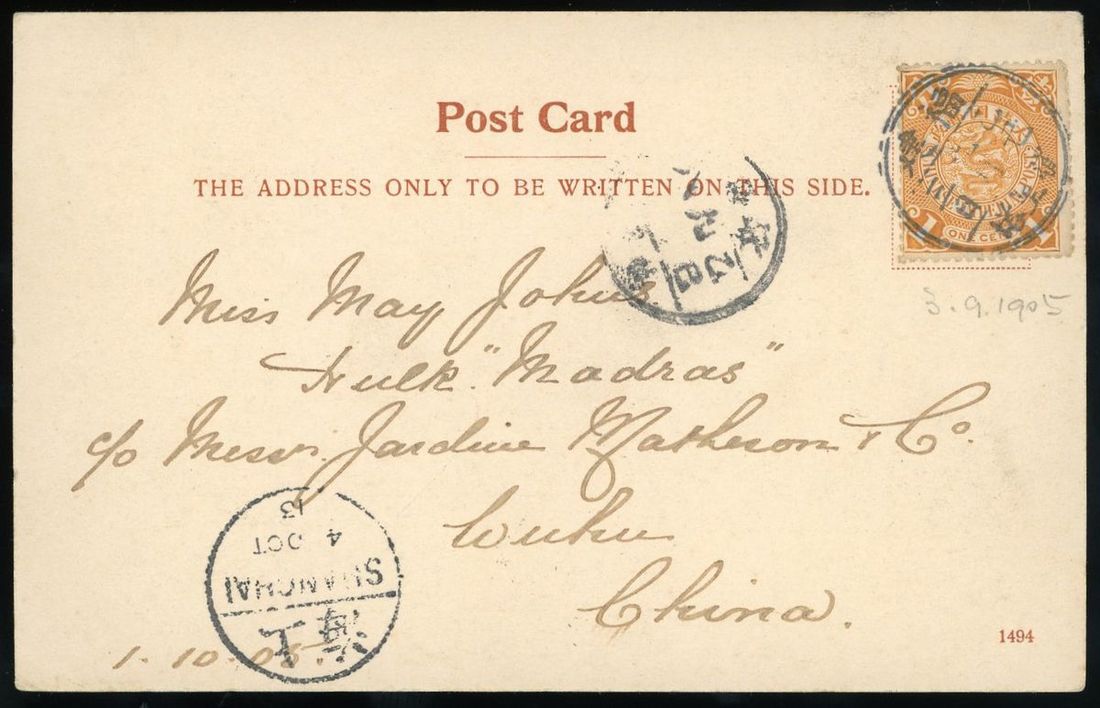 Post Card
THE ADDRESS ONLY TO BE WRITTEN ON THIS SIDE.
1 ONE CENT 1
3.9.1905
Miss May Johns
Hulk "Madras"
c/o Messrs. Jardine Matheson & Co.
Wuhu
China.
13
4 OCT
SHANGHAI
上海
1.10.05
1494